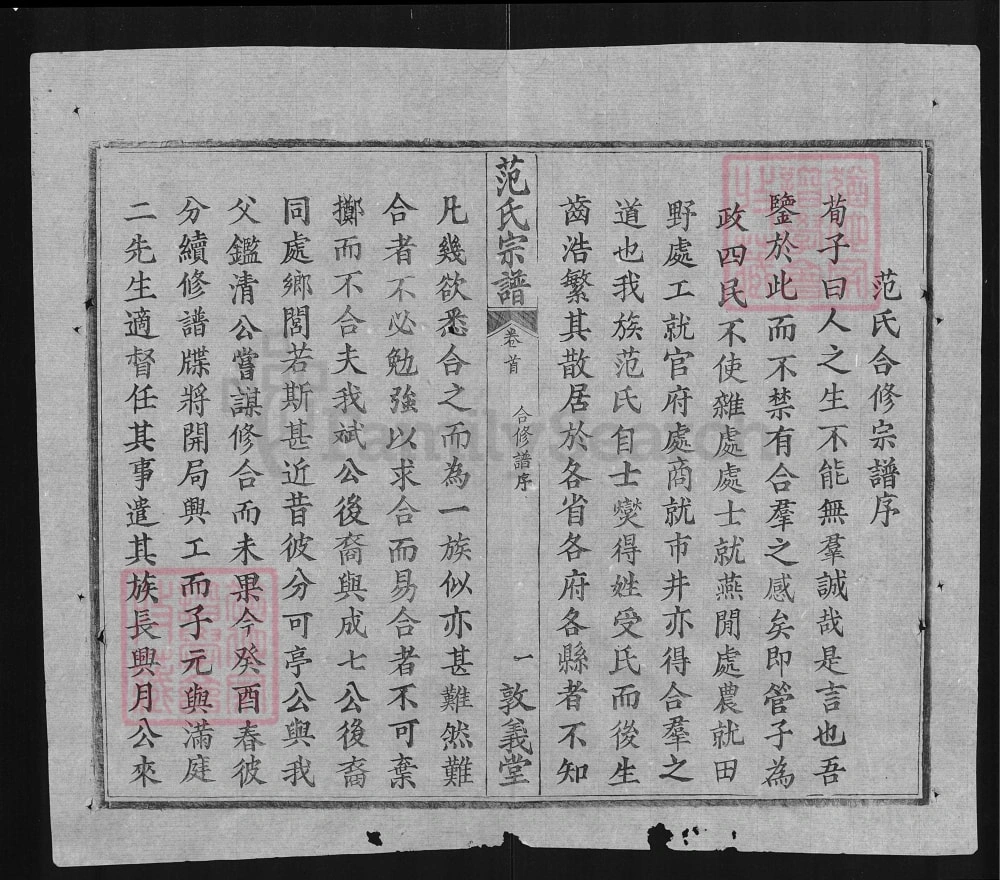 范氏合修宗譜序
荀子曰人之生不能無羣誠哉是言也吾
鑒於此而不禁有合羣之感矣即管子為
政四民不使雜處處士就燕閒處農就田
野處工就官府處商就市井亦得合羣之
道也我族范氏自士爕得姓受氏而後生
齒浩繁其散居於各省各府各縣者不知
范氏宗譜
卷首
合修譜序
一
敦義堂
凡幾欲悉合之而為一族似亦甚難然難
合者不必勉強以求合而易合者不可棄
擲而不合夫我斌公後裔與成七公後裔
同處鄉閭若斯甚近昔彼分可亭公與我
父鑑清公嘗謀修合而未果今癸酉春彼
分續修譜牒將開局興工而子元與滿庭
二先生適督任其事遣其族長興月公來
FamilySearch